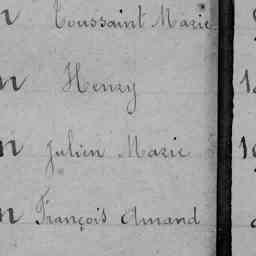 n Toussaint Marie
n Henry
n Julien Marie
n François Amand